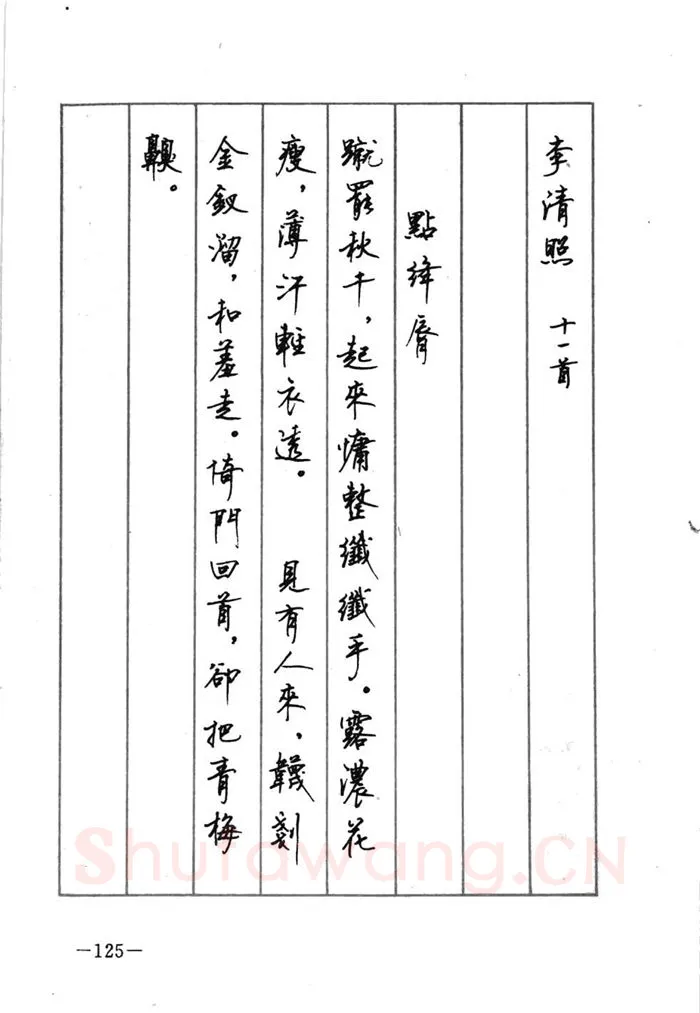 李清照 十一首
點絳脣
蹴罷秋千，起來慵整纖纖手。露濃花
瘦，薄汗輕衣透。 見有人來，韈剗
金釵溜，和羞走。倚門回首，卻把青梅
齅。
Shufawang.CN
—125—